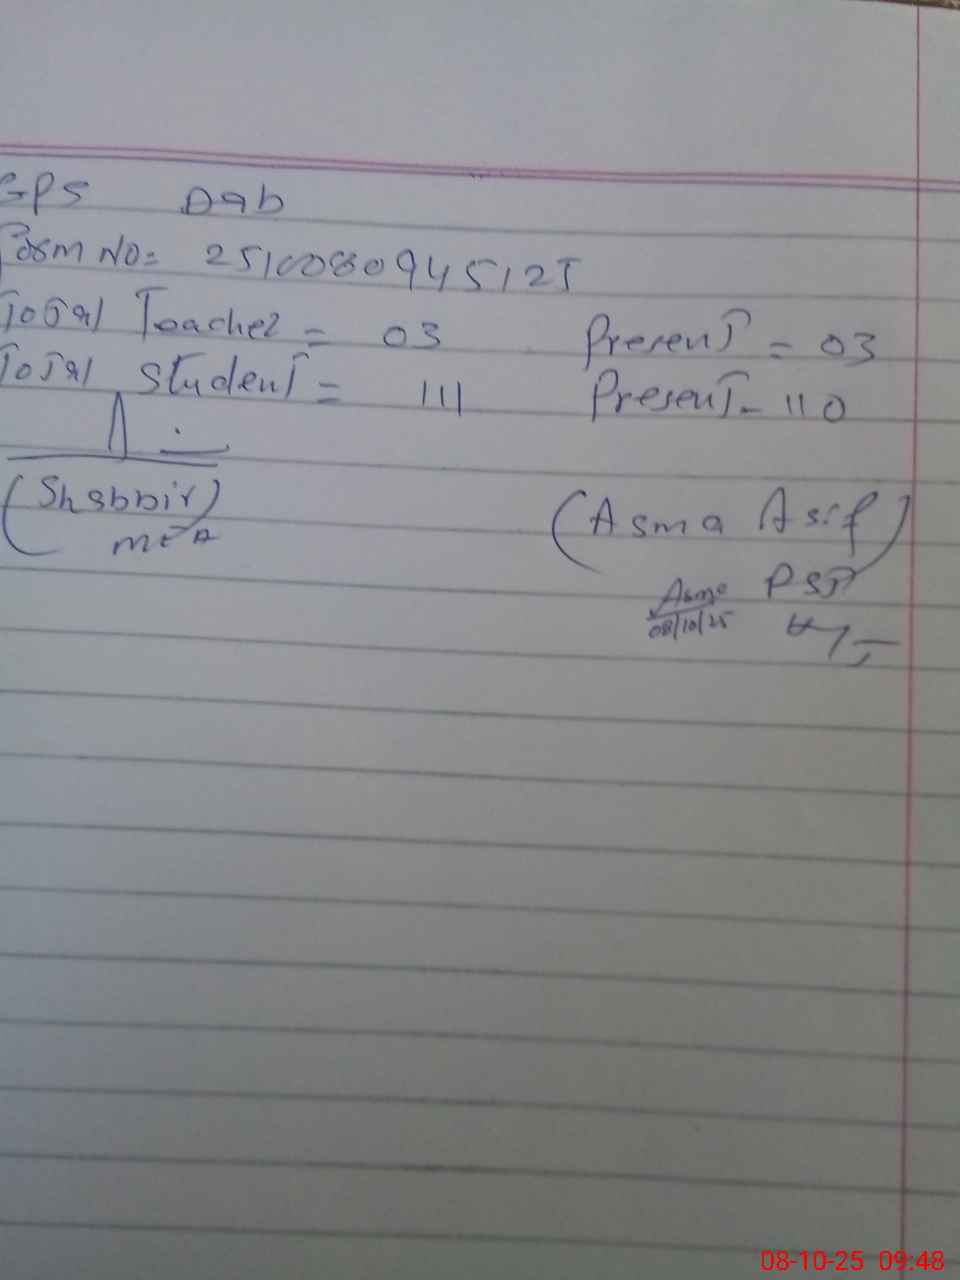 GPS Dab
Form No= 2510080945125
Total Teacher = 03 Present = 03
Total Student = 111 Present - 110
(Shabbir) (Asma Asif)
MEA PST
Asma
08/10/25
08-10-25 09:48